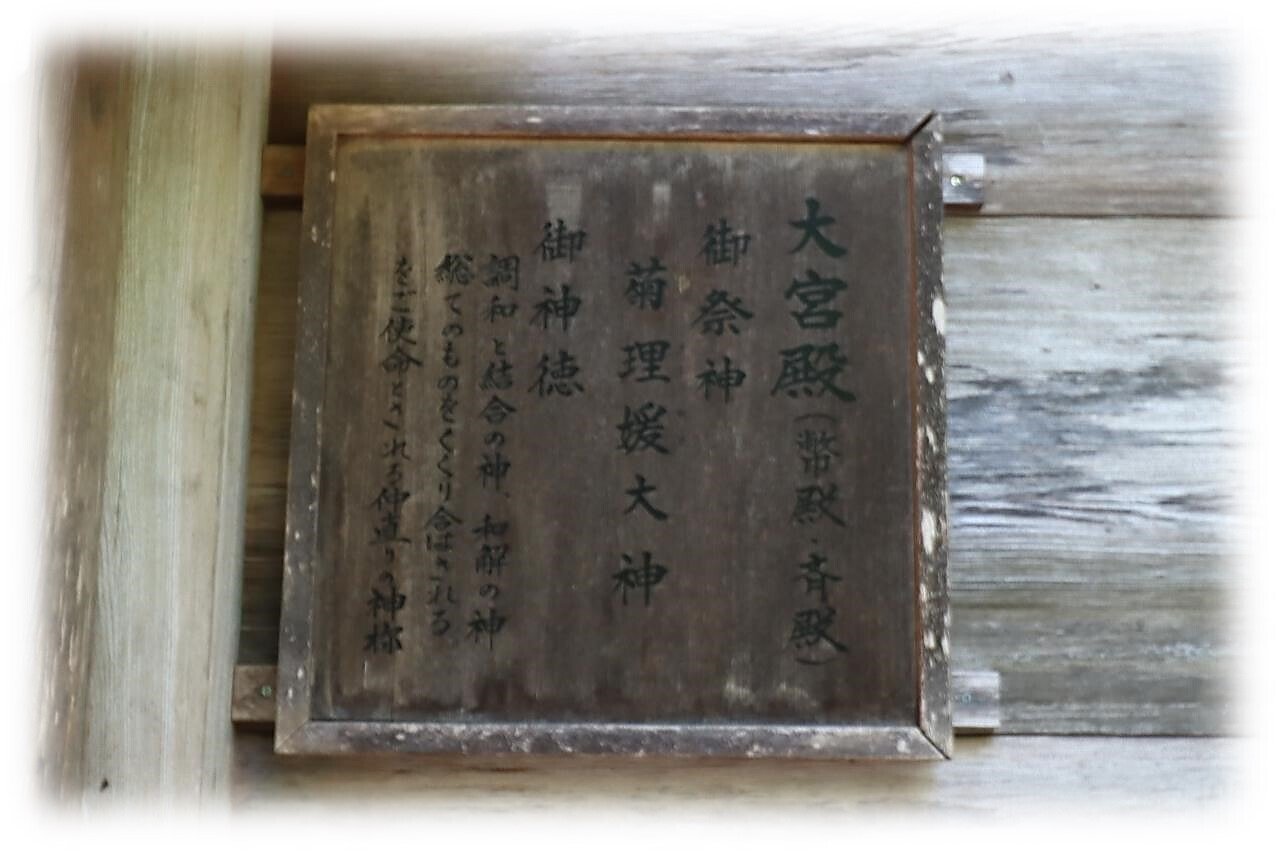 大宮殿(幣殿・斉殿)
御祭神
菊理媛大神
御神徳
調和と結合の神、和解の神
総てのものをくくり合はされる
をご使命とされる仲直りの神様